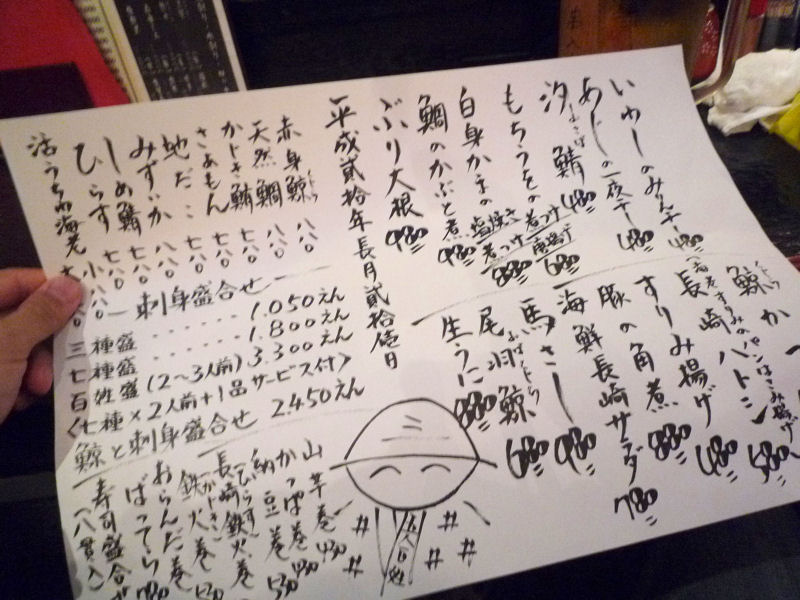 いわしのみりん干 480
あじの一夜干 480
汐鯖 480
もちうをの煮つけ 唐揚げ 680
白身かまの塩焼き 煮つけ 880
鯛のかぶと煮 980
ぶり大根 980
平成貳拾年長月貳拾壱日
赤身鯨 くじら 八八〇
天然鯛 八八〇
かじき鮪 七八〇
さあもん 七八〇
地だこ 七八〇
みずいか 八八〇
しめ鯖 七八〇
ひらす 八八〇
活うちわ海老
鯨か
長崎ハトシ 580
(海老すりみのパンはさみ揚げ)
すりみ揚げ 480
豚の角煮 880
海鮮長崎サラダ 780
馬さし 980
尾羽鯨 おばくじら 680
生うに 880
刺身盛合せ
三種盛 1.050えん
七種盛 1.800えん
百姓盛(2〜3人前) 3.300えん
〈七種×2人前+1品サービス付〉
鯨と刺身盛合せ 2.450えん
山芋巻 430
かっぱ巻 430
納豆巻 530
長崎鉄火巻 (ひらす)
鉄火巻 (かじき) 530
おらんだ巻
ばってら 780
寿司盛合せ
(八貫入)
五人百姓